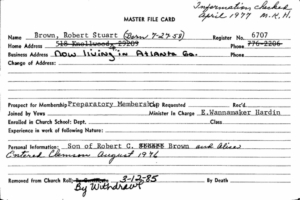 Information checked
April 1977 M.K.H.
MASTER FILE CARD
Name Brown, Robert Stuart (Born 7-27-58) Register No. 6707
Home Address 518 Knollwood, 29209 Phone 776-2206
Business Address Now living in Atlanta Ga. Phone
Change of Address:
Prospect for Membership Preparatory Membership Requested Rec'd.
Joined by Vows Minister in Charge E. Wannamaker Hardin
Enrolled in Church School: Dept. Class
Experience in work of following Nature:
Personal Information: Son of Robert G. Brown and Alice
Entered Clemson August 1976
Removed from Church Roll: 3-12-85 By Death
By Withdrawl